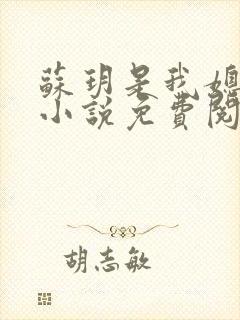 蘇玥是我媽
小說免費閱
胡志敏